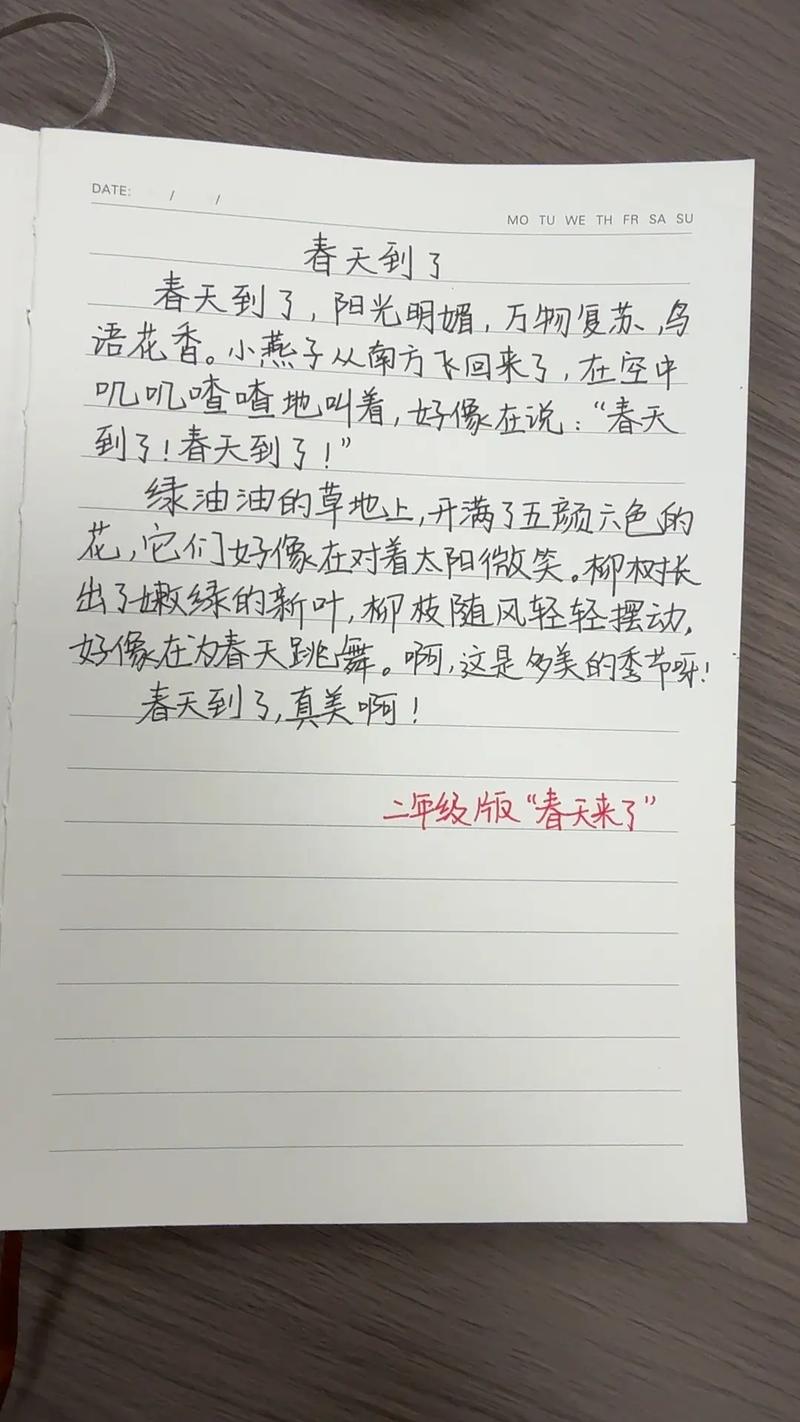 DATE: / /
MO TU WE TH FR SA SU
春天到了
春天到了，阳光明媚，万物复苏、鸟
语花香。小燕子从南方飞回来了，在空中
叽叽喳喳地叫着，好像在说：“春天
到了！春天到了！”
绿油油的草地上，开满了五颜六色的
花，它们好像在对着太阳微笑。柳树长
出了嫩绿的新叶，柳枝随风轻轻摆动，
好像在为春天跳舞。啊，这是多美的季节呀！
春天到了，真美啊！
二年级版“春天来了”